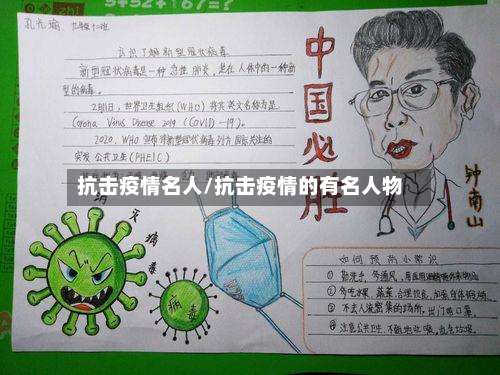 孔令瑜
认识了解新型冠状病毒
新型冠状病毒是一种急性肺炎，是在人体中的一种新
型的病毒。
2月11日，世界卫生组织（WHO）将其英文名称为是
Corona Virus Disease 2019（COVID-19）。
2020，WHO
突发公共卫生（PHEIC）
中国必胜
抗击疫情名人/抗击疫情的有名人物
消灭病毒
病毒
钟南山
如何预防小常识
① 勤洗手，多通风，
② 多吃水果、蔬菜，合理饮食，加强身体锻炼
③ 不去人流密集的场所，出门戴口罩。
④ 注意公共卫生，不随地吐痰，